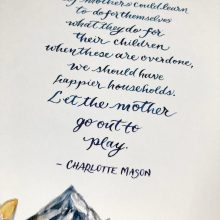 mothers could learn
to do for themselves
what they do for
their children
when these are overdone,
we should have
happier households.
Let the mother
go out to
play.
- CHARLOTTE MASON